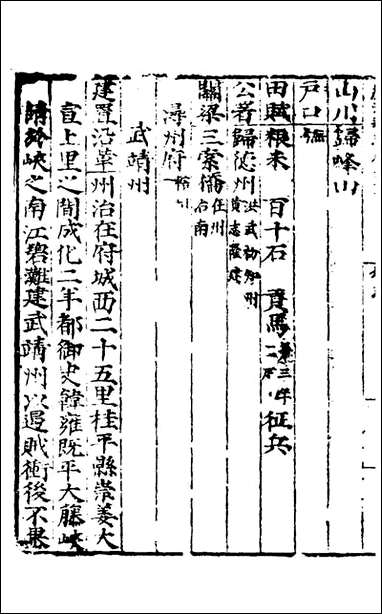 山川歸峰山
戶口無
田賦粮米 百十石 貢馬 每三年 一 征兵
公署歸德州 洪武初知州 黃志隆建
關梁三寨橋 在州 治南
潯州府
武靖州
建置沿革州治在府城西二十五里桂平縣崇姜大
宣上里之間成化二年都御史韓雍既平大藤峽
請於峽之南江碧灘建武靖州以遏賊衝後不果